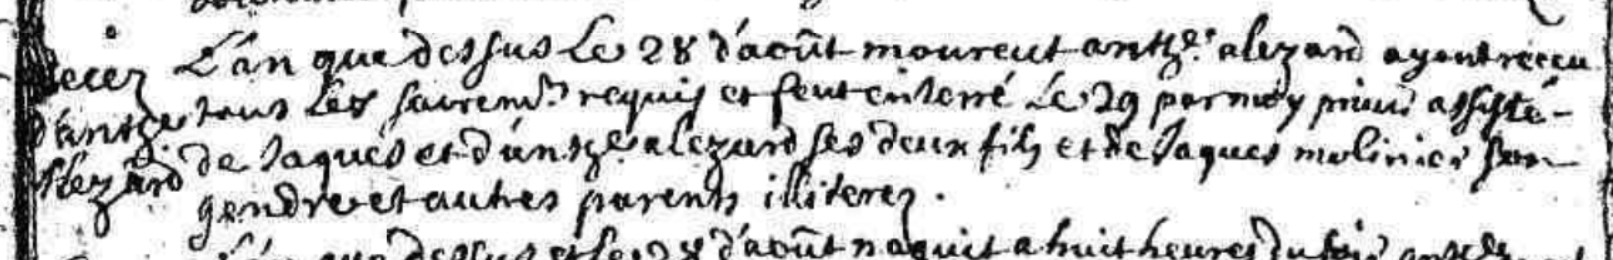 L'an que dessus Le 28 d'août mourut anthe. alezard ayant receu
decez
tous Les sacrem.ts requis et feut enterré Le 29 par moy prieur assisté
d'anthe
de Jaques et d'anthe. alezard ses deux fils et de Jaques molinier son
Alezard
gendre et autres parents illiterez.
L'an que dessus et le 28 d'août naquit a huit heures du soir